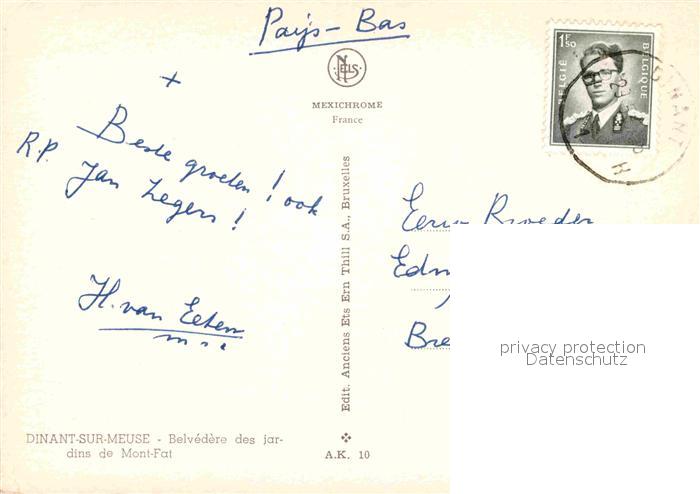 Pays-Bas
NELS
MEXICHROME
France
1F50
BELGIË
BELGIQUE
DINANT
+
Beste groeten! ook
R.P. Jan Zegers!
H. van Eeten
m.s.c.
Eerw Broeder
Edm
Bre
privacy protection
Datenschutz
Edit. Anciens Ets Ern Thill S.A., Bruxelles
DINANT-SUR-MEUSE - Belvédère des jar-
dins de Mont-Fat
A.K. 10